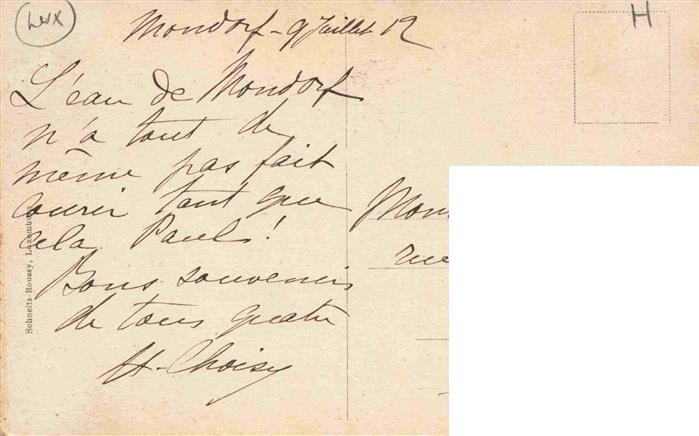 Lux
H
Mondorf - 9 Juillet 12
L'eau de Mondorf
n'a tout de
même pas fait
courir tant que
cela Pauls!
Bons souvenirs
de tous quatre
H. Choisy
Mon
rue
Schneitz-Roussy, Luxembu